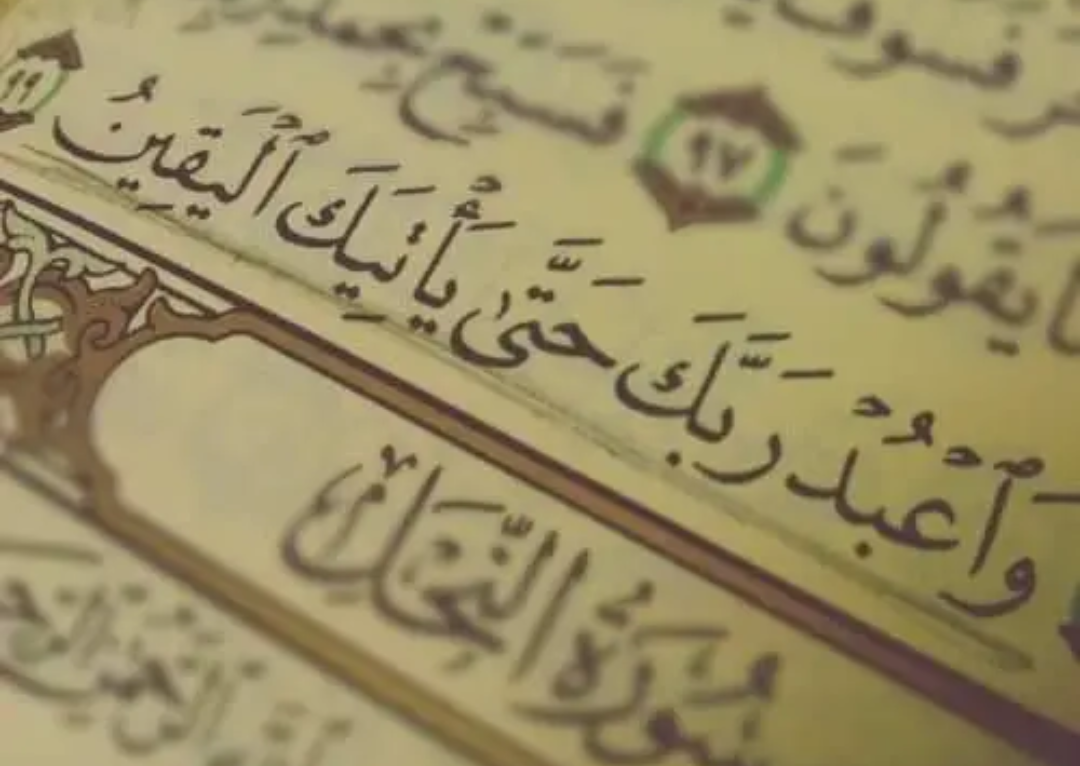 فسوف
ما يقولون ٩٧ فسبح بحمد
وَٱعْبُدْ رَبَّكَ حَتَّىٰ يَأْتِيَكَ ٱلْيَقِينُ ٩٩
سُورَةُ النَّحْلِ